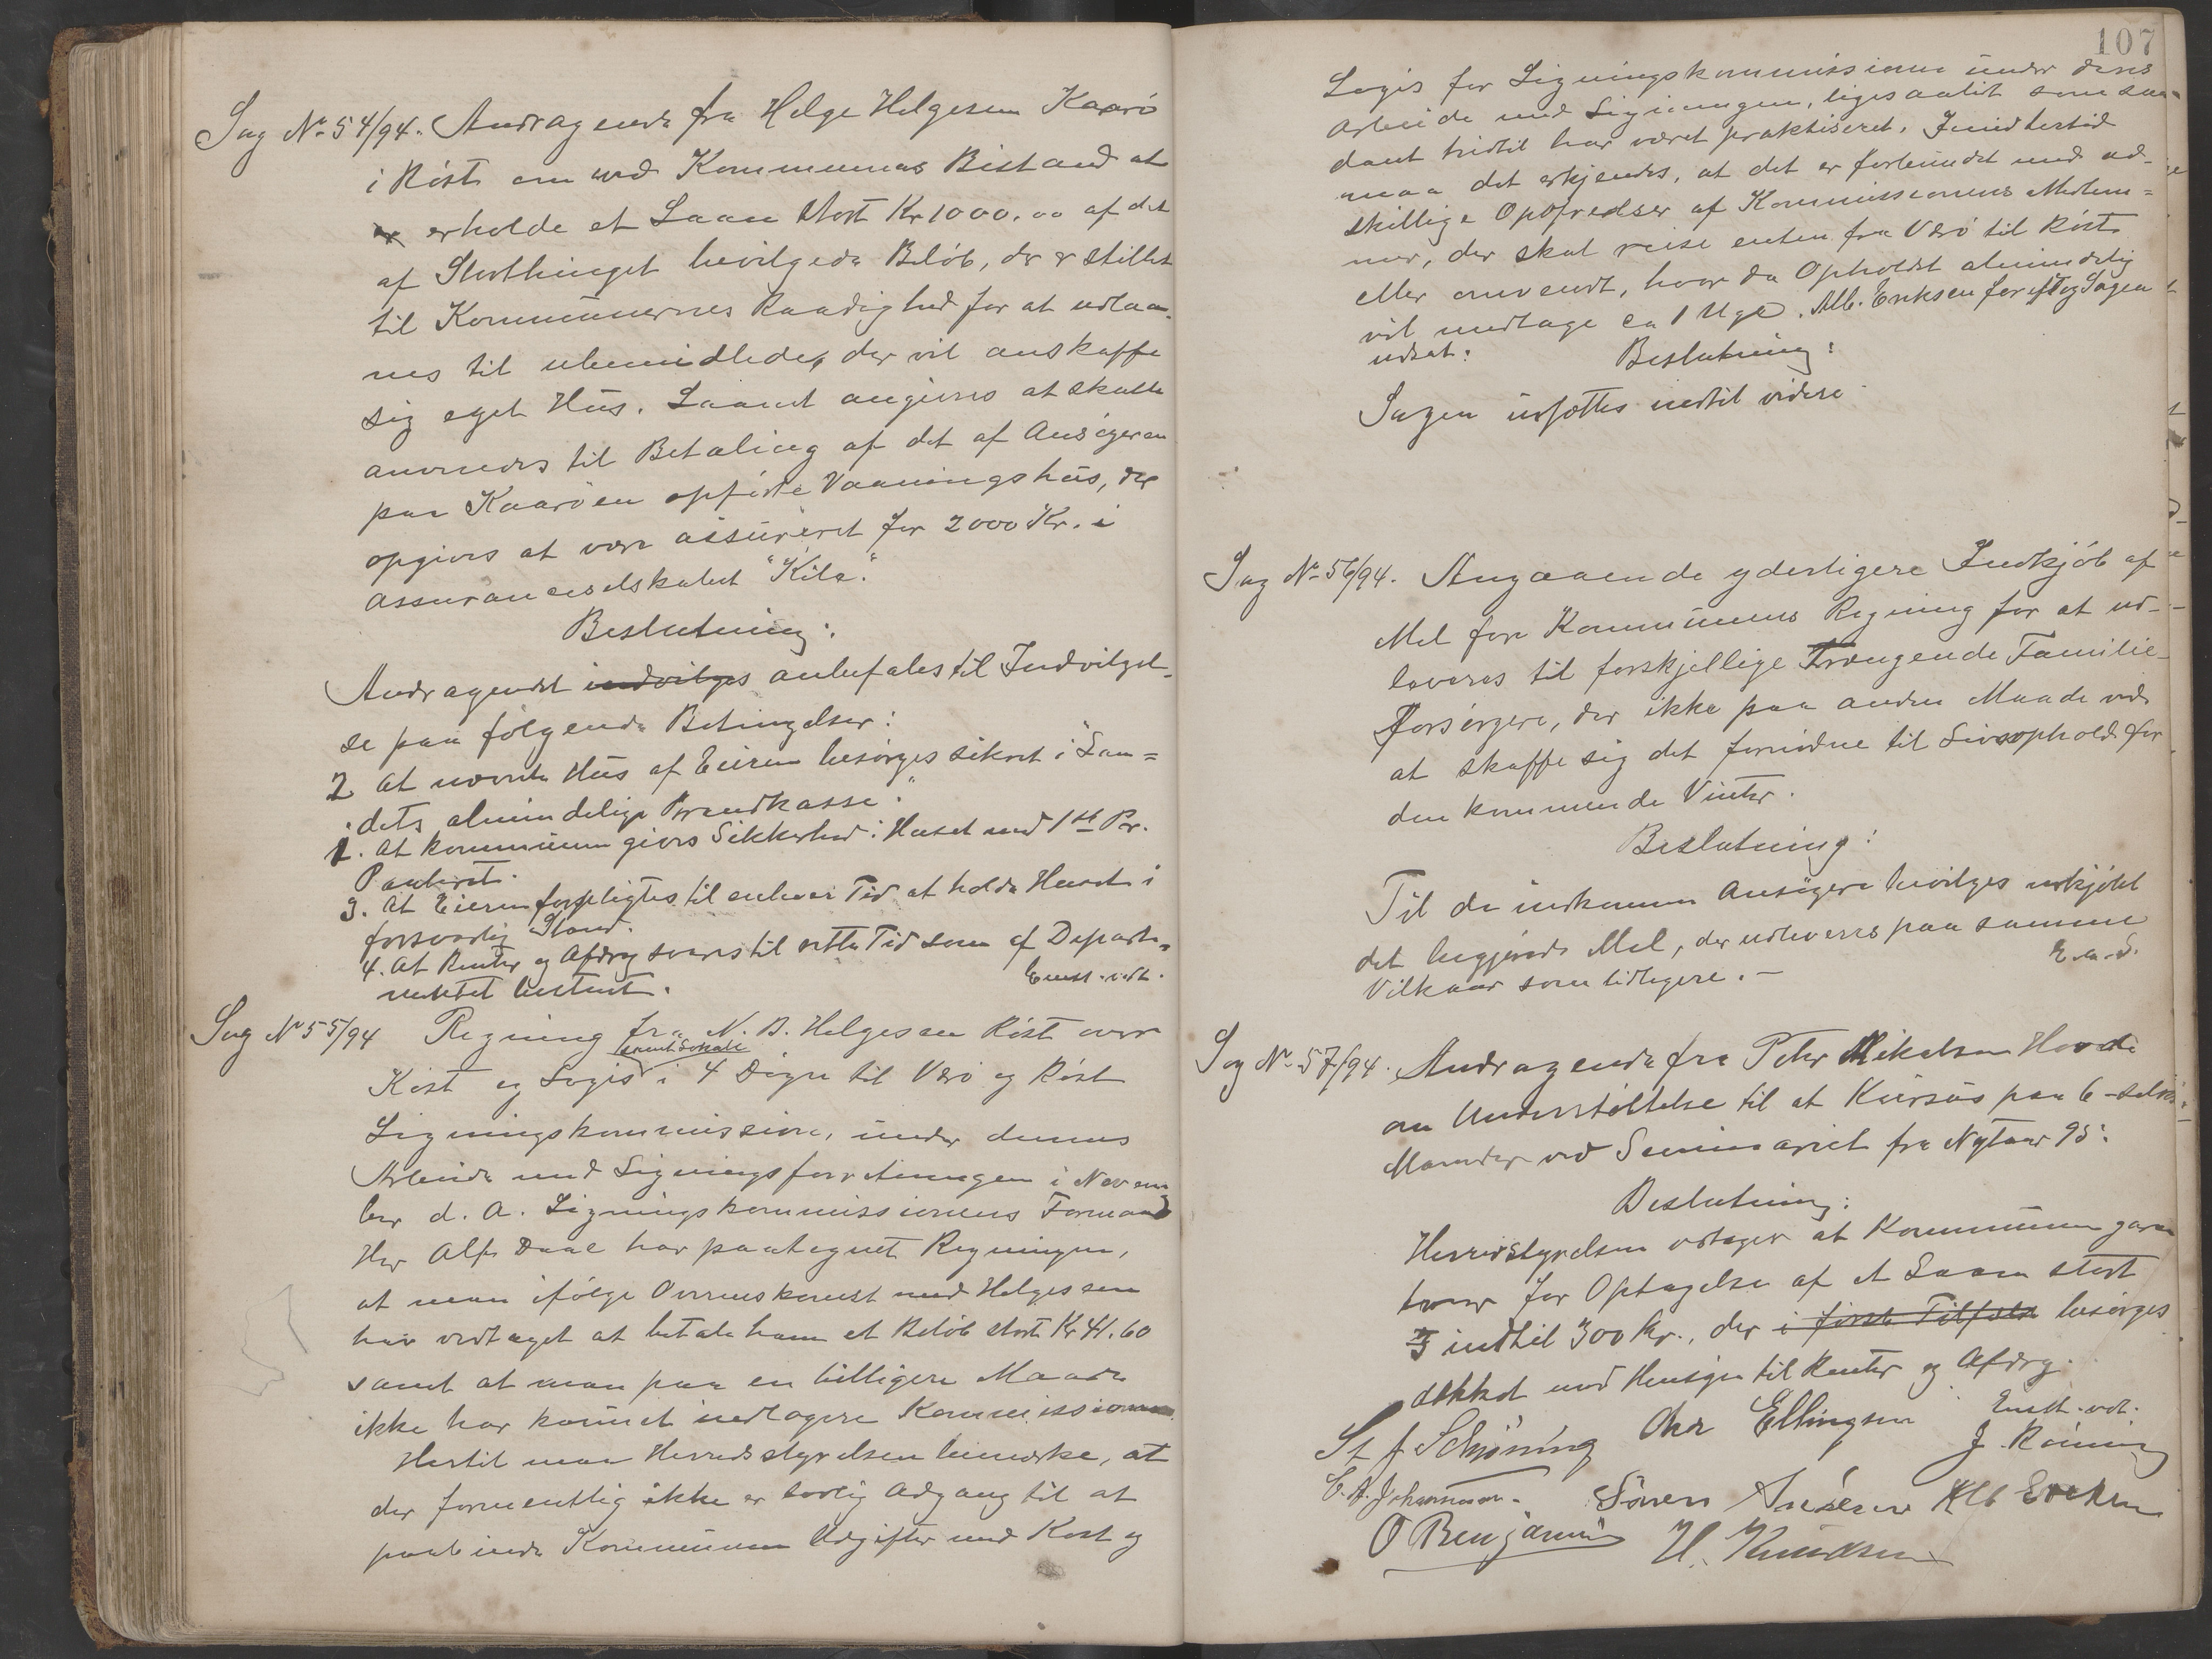 Sag No 54/94. Andragende fra Helge Helgesen Kaarö
i Röst om ved Kommunens Bistand at
erholde et Laan stort Kr 1000.00 af det
af Storthinget bevilgede Belöb, der er stillet
til Kommunernes Raadighed for at udlaa-
nes til ubemidlede, der vil anskaffe
sig eget Hus. Laanet angives at skulle
anvendes til Betaling af det af Ansögeren
paa Kaaröen opförte Vaaningshus, der
opgives at være assureret for 2000 Kr. i
Assuranceselskabet "Kila".
Beslutning:
Andragendet indvilges anbefales til Indvilgel-
se paa fölgende Betingelser:
2 at nævnte Hus af Eieren besörges sikret i "Lan=
dets almindelige Brandkasse".
1. At Kommunen gives Sikkerhed i Huset med 1ste Pr.
Panteret.
3. At Eieren forpligtes til enhver Tid at holde Huset i
forsvarlig Stand.
4. At Renter og Afdrag svares til rette Tid som af Departe-
mentet bestemt.
Enst. vedt.
Sag No 55/94 Regning fra N. B. Helgesen Röst over
samt Lokale
Kost og Logis i 4 Dögn til Værö og Röst
Ligningskommission, under dennes
Arbeide med Ligningsforretningen i Novem
ber d. A. Ligningskommissionens Formand
Hr Alf Daae har paategnet Regningen,
at man ifölge Overenskomst med Helgesen
har vedtaget at betale ham et Belöb stort Kr 41.60
samt at man paa en billigere Maade
ikke har kunnet indlogere Kommissionen
Hertil maa Herredsstyrelsen bemærke, at
der formentlig ikke er lovlig Adgang til at
paabinde Kommunen Udgifter med Kost og
107
Logis for Ligningskommissionen under dens
Arbeide med Ligningen, ligesaalidt som saa-
dant hidtil har været praktiseret. Imidlertid
maa det erkjendes, at det er forbundet med ad-
skillige Opofrelser af Kommissionens Medlem=
mer, der skal reise enten fra Værö til Röst
eller omvendt, hvor da Opholdet almindelig
vil medtage ca 1 Uge. Alb. Eriksen Sagen
udsat:
Beslutning:
Sagen udsættes indtil videre
Sag No 56/94. Angaaende yderligere Indkjöb af
Mel for Kommunens Regning for at ud-
leveres til forskjellige Trængende Familie-
Forsörgere, der ikke paa anden Maade ved
at skaffe sig det fornödne til Livsophold for
den kommende Vinter.
Beslutning:
Til de indkomne Ansögere bevilges indkjöbt
det begjærede Mel, der udleveres paa samme
Vilkaar som tidligere. —
E.a.S.
Sag No 57/94. Andragende fra Peter Mikelsen
om Understöttelse til at Kursus paa 6-
Maaneder ved Seminariet fra Nytaar 95.
Beslutning:
Herredsstyrelsen vedtager at Kommunen garan
terer for Optagelse af et Laan stort
indtil 300 Kr., der i förste Tilfælde besörges
dækket med Hensyn til Renter og Afdrag.
Enst. vedt.
St J Schjöning Ole Ellingsen J. Röining
E. A. Johannesen. Sören Alb Eriksen
O Benjamin H. Knudsen